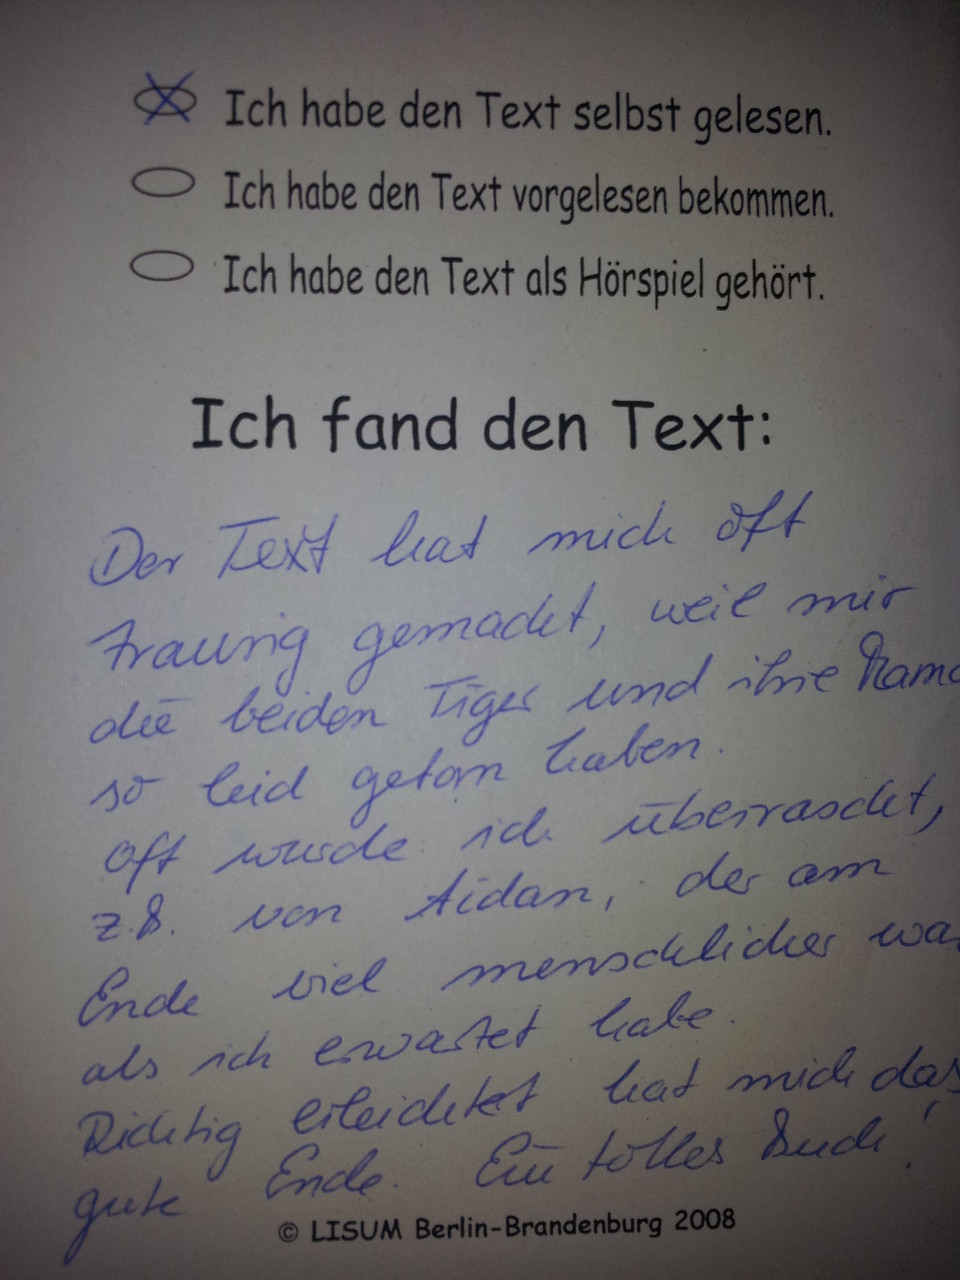 Ich habe den Text selbst gelesen.
Ich habe den Text vorgelesen bekommen.
Ich habe den Text als Hörspiel gehört.
Ich fand den Text:
Der Text hat mich oft
traurig gemacht, weil mir
die beiden Tiger und ihre Mama
so leid getan haben.
Oft wurde ich überrascht,
z.B. von Aidan, der am
Ende viel menschlicher war
als ich erwartet habe.
Richtig erleichtert hat mich das
gute Ende. Ein tolles Buch!
© LISUM Berlin-Brandenburg 2008